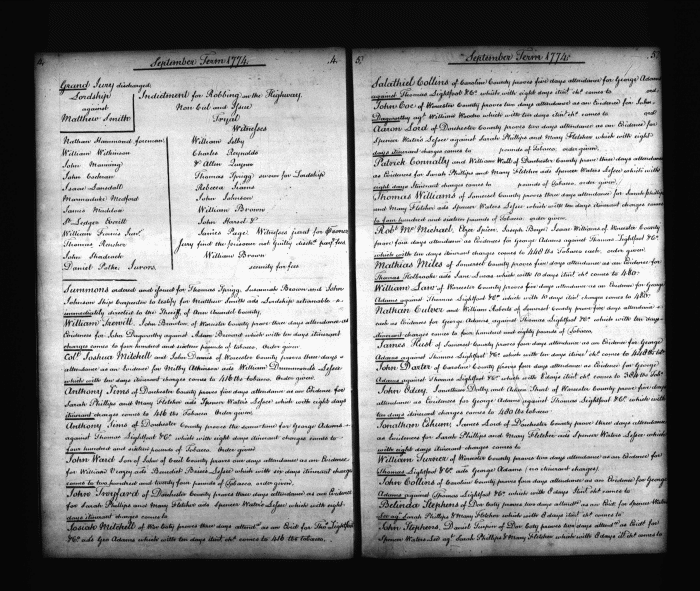 4. September Term 1774. 4.
Grand Jury discharged
Lordship Indictment for Robbing on the Highway.
against Non Cul and Issue
Matthew Smith Tryal
Witnesses
Nathan Hammond foreman William Selby
William Wilkinson Charles Reynolds
John Manning Allen Quynn
John Cochran Thomas Sprigg owner for Lordship
Isaac Lansdall Rebecca
Marmaduke Medford John Johnson
James Maddow William Brown
Ledger Everitt John Hazeel
William Francis James Page Witnesses
Thomas Rasher Jury find the prisoner not Guilty
John Shadrach William Brown
Daniel Jurors security for fees
Summons ordered and issued for Thomas Sprigg, Susannah Brown and John
Johnson Ship Carpenter to testify for Matthew Smith ads Lordship returnable
immediately directed to the Sheriff of Ann Arundel County.
William John of Worcester County prove three days attendance
Evidences for John Dagworthy against Adam Brevard which with ten days itinerant
charges comes to four hundred and sixteen pounds of tobacco. Order given.
Coll Joshua Mitchell and John Dennis of Worcester County proves three days
attendance as an Evidence for Milby Atkinson ads William Drummonds Lessee
which with ten days itinerant charges comes to 416 lbs Tobacco. Order given.
Anthony Sims of Dorchester County proves four days attendance as an Evidence for
Sarah Phillips and Mary Fletcher ads Spencer Waters Lessee which with eight days
itinerant charges comes to 416 lbs Tobacco Order given.
Anthony Sims of Dorchester County proves the same time for George Adams
against Thomas Lightfoot &Co. which with eight days itinerant charges comes to
four hundred and sixteen pounds of Tobacco Order given
John Ward of Cecil County attendance as an Evidence
for William Veazey ads Benedict Lessee which with six days itinerant charges
comes to two hundred and twenty four pounds of tobacco order given.
John of Dorchester County proves days attendance as an Evidence
for Sarah Phillips and Mary Fletcher ads Spencer Waters Lessee which with eight
days itinerant charges comes to
Josiah Mitchell of Wor Coty proves three days attend.ce as an Evid.e for Tho.s Lightfoot
&Co. ads Geo Adams which with ten days itin.t ch.s comes to 416 lbs tobacco.
5. September Term 1774. 5.
Salathiel Collins of Caroline County proves five days attendance for George Adams
against Thomas Lightfoot &Co. which with eight days itin.t ch.s comes to ord.
John Coe of Worcester County proves two days attendance as an Evidence for John
Dagworthy ag.t William which with ten days itin.t ch.s comes to ord.
Aaron Lord of Dorchester County proves two days attendance as an Evidence for
Spencer Waters Lessee against Sarah Phillips and Mary Fletcher which with eight
days itinerant charges comes to pounds of Tobacco. order given.
Patrick Connally and William Wall of Dorchester County prove three days attendance
as Evidences for Sarah Phillips and Mary Fletcher ads Spencer Waters Lessee which with
eight days itinerant charges comes to pounds of Tobacco. order given.
Thomas Williams of Somerset County proves four days attendance for Sarah Phillips
and Mary Fletcher ads Spencer Waters Lessee which with eight days itinerant charges comes
to four hundred and sixteen pounds of Tobacco. order given.
Rob.t Mc Michael, Spicer, Joseph Isaac Williams of Worcester County
prove four days attendance as Evidences for George Adams against Thomas Lightfoot &Co.
which with ten days itinerant charges comes to 440 lbs Tobacco each. order given.
Mathias Miles of Somerset County proves four days attendance as an Evidence for
Thomas Holbrooke ads Jane which with 10 days itin.t ch.s comes to 480.
William Law of Worcester County proves four days attendance as an Evidence for George
Adams against Thomas Lightfoot &Co. which with 10 days itin.t charges comes to 480.
Nathan Culver and William Roberts of Somerset County prove four days attendance
each as Evidences for George Adams against Thomas Lightfoot &Co. which with ten days
itinerant charges comes to four hundred and eighty pounds of Tobacco.
James Hust of Somerset County proves days attendance as an Evidence for George
Adams against Thomas Lightfoot &Co. which with ten days itin.t ch.s comes to 448
John Darter of Caroline County proves four days attendance as an Evidence for George
Adams against Thomas Lightfoot &Co. which with 8 days itin.t ch.s comes to
John Odey, Jonathan and Adam of Worcester County prove four days
attendance as Evidences for George Adams against Thomas Lightfoot &Co. which with
ten days itinerant charges comes to 480 lbs tobacco
Jonathan James Lord of Dorchester County prove three days attendance
as Evidences for Sarah Phillips and Mary Fletcher ads Spencer Waters Lessee which
with eight days itinerant charges comes to
William Turner of Worcester County proves two days attendance as an Evidence for
Thomas Lightfoot &Co. ads George Adams (no itinerant charges).
John Collins of Caroline County proves four days attendance as an Evidence for George
Adams against Thomas Lightfoot &Co. which with 8 days itin.t ch.s comes to
Belinda Stephens of Dor Coty proves two days attend.ce as an Evid.e for Spencer Waters
Lee ag.t Sarah Phillips & Mary Fletcher which with 8 days itin.t ch.s comes to
John Stephens, Daniel of Dor Coty proves two days attend.ce as Evid.e for
Spencer Waters Led ag.t Sarah Phillips & Mary Fletcher with 8 days itin.t ch.s comes to